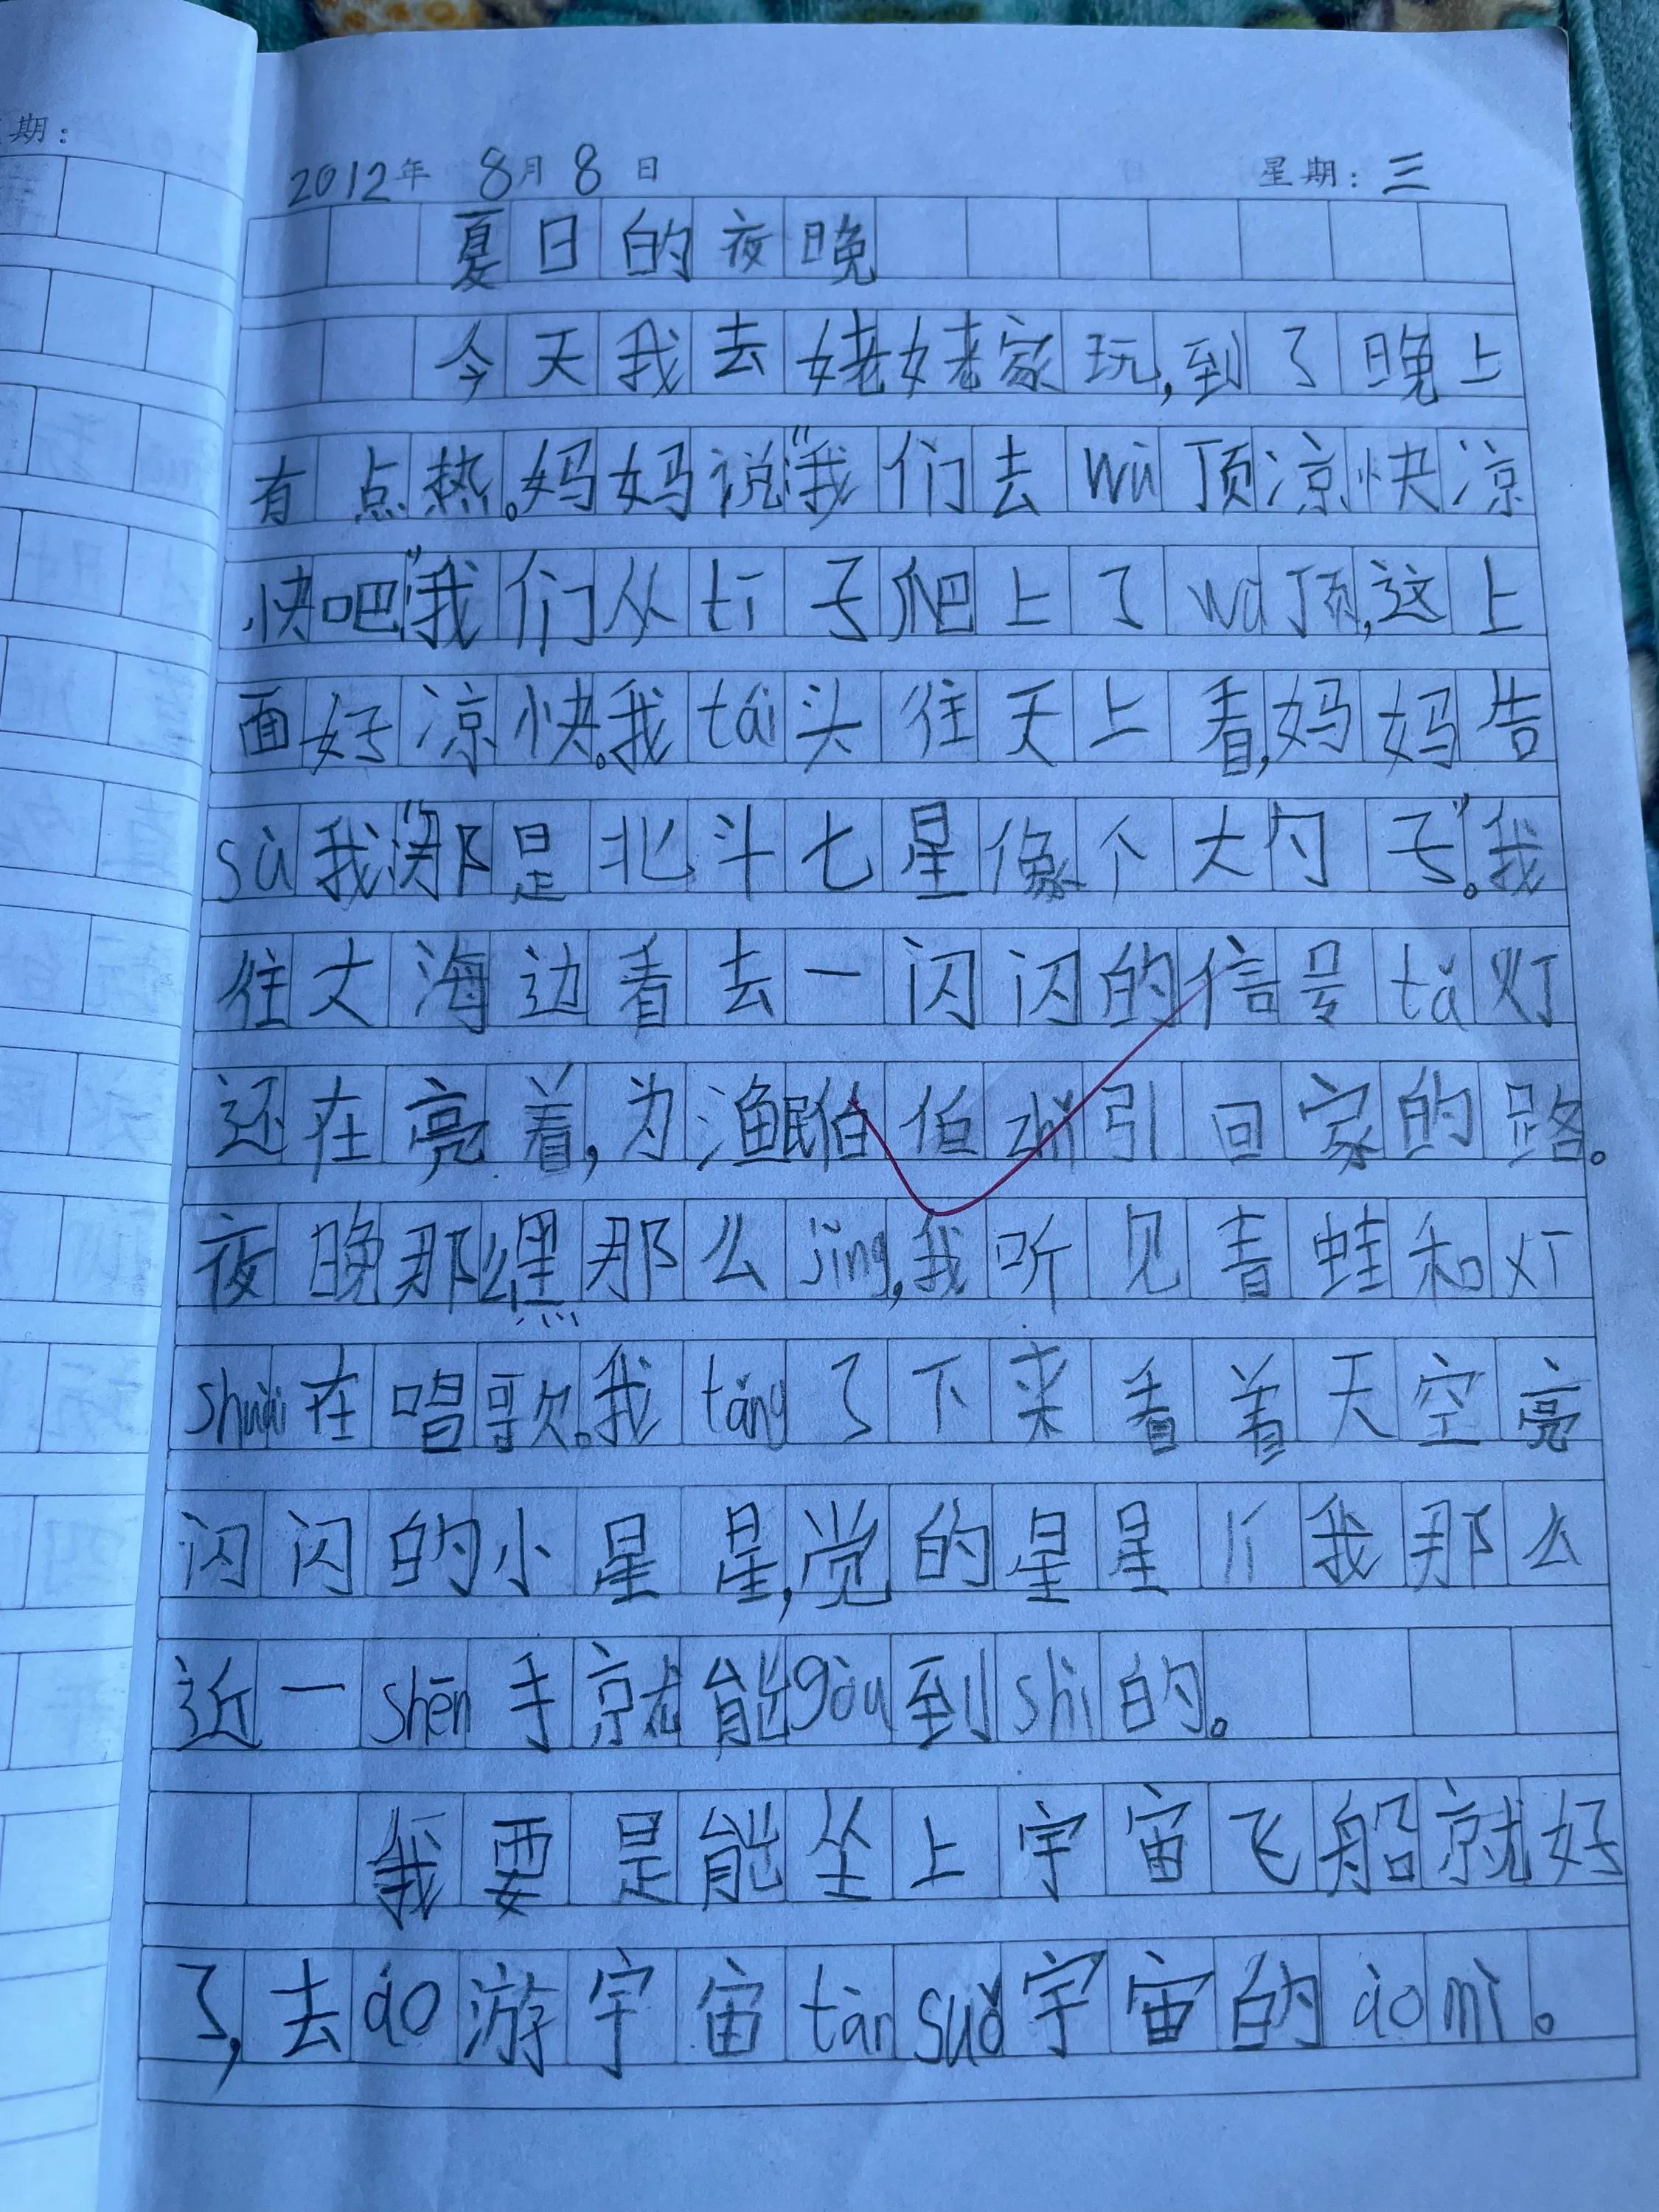 期:
2012年 8月 8日 星期:三
夏日的夜晚
今天我去姥姥家玩,到了晚上
有点热。妈妈说“我们去wū顶凉快凉
快吧”我们从tī子爬上了wū顶,这上
面好凉快。我tái头往天上看,妈妈告
sù我“那是北斗七星像个大勺子”。我
往大海边看去一闪闪的信号tǎ灯
还在亮着,为渔民伯伯zhǐ引回家的路。
夜晚那么黑那么jìng,我听见青蛙和
shuài在唱歌。我tǎng了下来看着天空亮
闪闪的小星星,觉的星星lí我那么
近一shēn手就能gòu到shì的。
我要是能坐上宇宙飞船就好
了,去áo游宇宙tàn suǒ宇宙的ào mì。